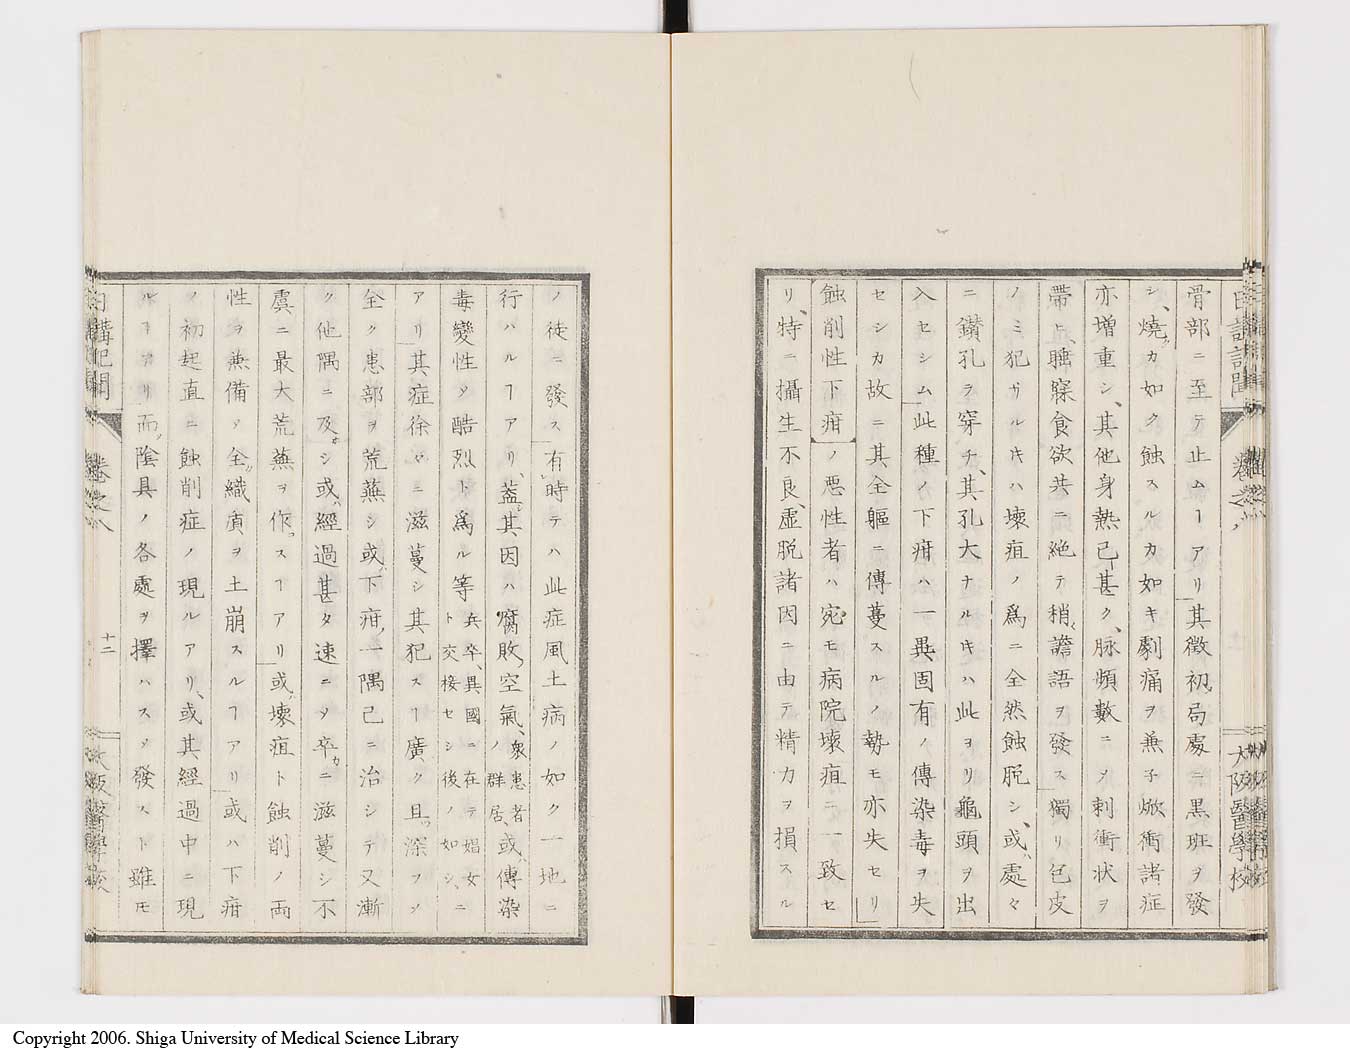 骨部ニ至テ止ムヿアリ其徴初メ局處ニ黒班ヲ發
シ、燒クカ如ク蝕スルカ如キ劇痛ヲ兼子焮衝諸症
亦增重シ、其他身熱已ニ甚ク、脉頻數ニメ刺衝状ヲ
帶ヒ、聽寐食欲共ニ絶テ稍〻譫語ヲ發ス獨リ包皮
ノミ犯サルヽキハ壞疽ノ爲ニ全然蝕脱シ、或ハ處々
ニ鑚孔ヲ穿チ、其孔大ナルキハ此ヨリ龜頭ヲ出
入セシム此種ノ下疳ハ一異固有ノ傳染毒ヲ失
セシカ故ニ其全軀ニ傳蔓スルノ勢モ亦失セリ
蝕削性下疳ノ悪性者ハ宛モ病院壞疽ニ一致セ
リ、特ニ攝生不良、虚脱諸因ニ由テ精力ヲ損スル
大阪醫學校
ノ徒ニ發ス有時テハ此症風土病ノ如ク一地ニ
行ハルヿアリ、蓋シ其因ハ腐敗空氣、衆患者ノ群居、或ハ傳染
毒變性メ酷烈ト爲ル等兵卒、異國ニ在テ娼女ト交接セシ後ノ如シ、ニ
アリ其症徐々ニ滋蔓シ其犯スヿ廣ク且ツ深フメ
全ク患部ヲ荒蕪シ或ハ下疳ノ一隅已ニ治シテ又漸
ク他隅ニ及ホシ或ハ經過甚タ速ニメ卒カニ滋蔓シ不
虞ニ最大荒蕪ヲ作スヿアリ或ハ壞疽ト蝕削ノ兩
性ヲ兼備メ全ク織質ヲ土崩スルヿアリ或ハ下疳
ノ初起直ニ蝕削症ノ現ルアリ、或其經過中ニ現
ルヿアリ而メ陰具ノ各處ヲ擇ハスメ發スト雖モ
日講記聞　卷之八　十二